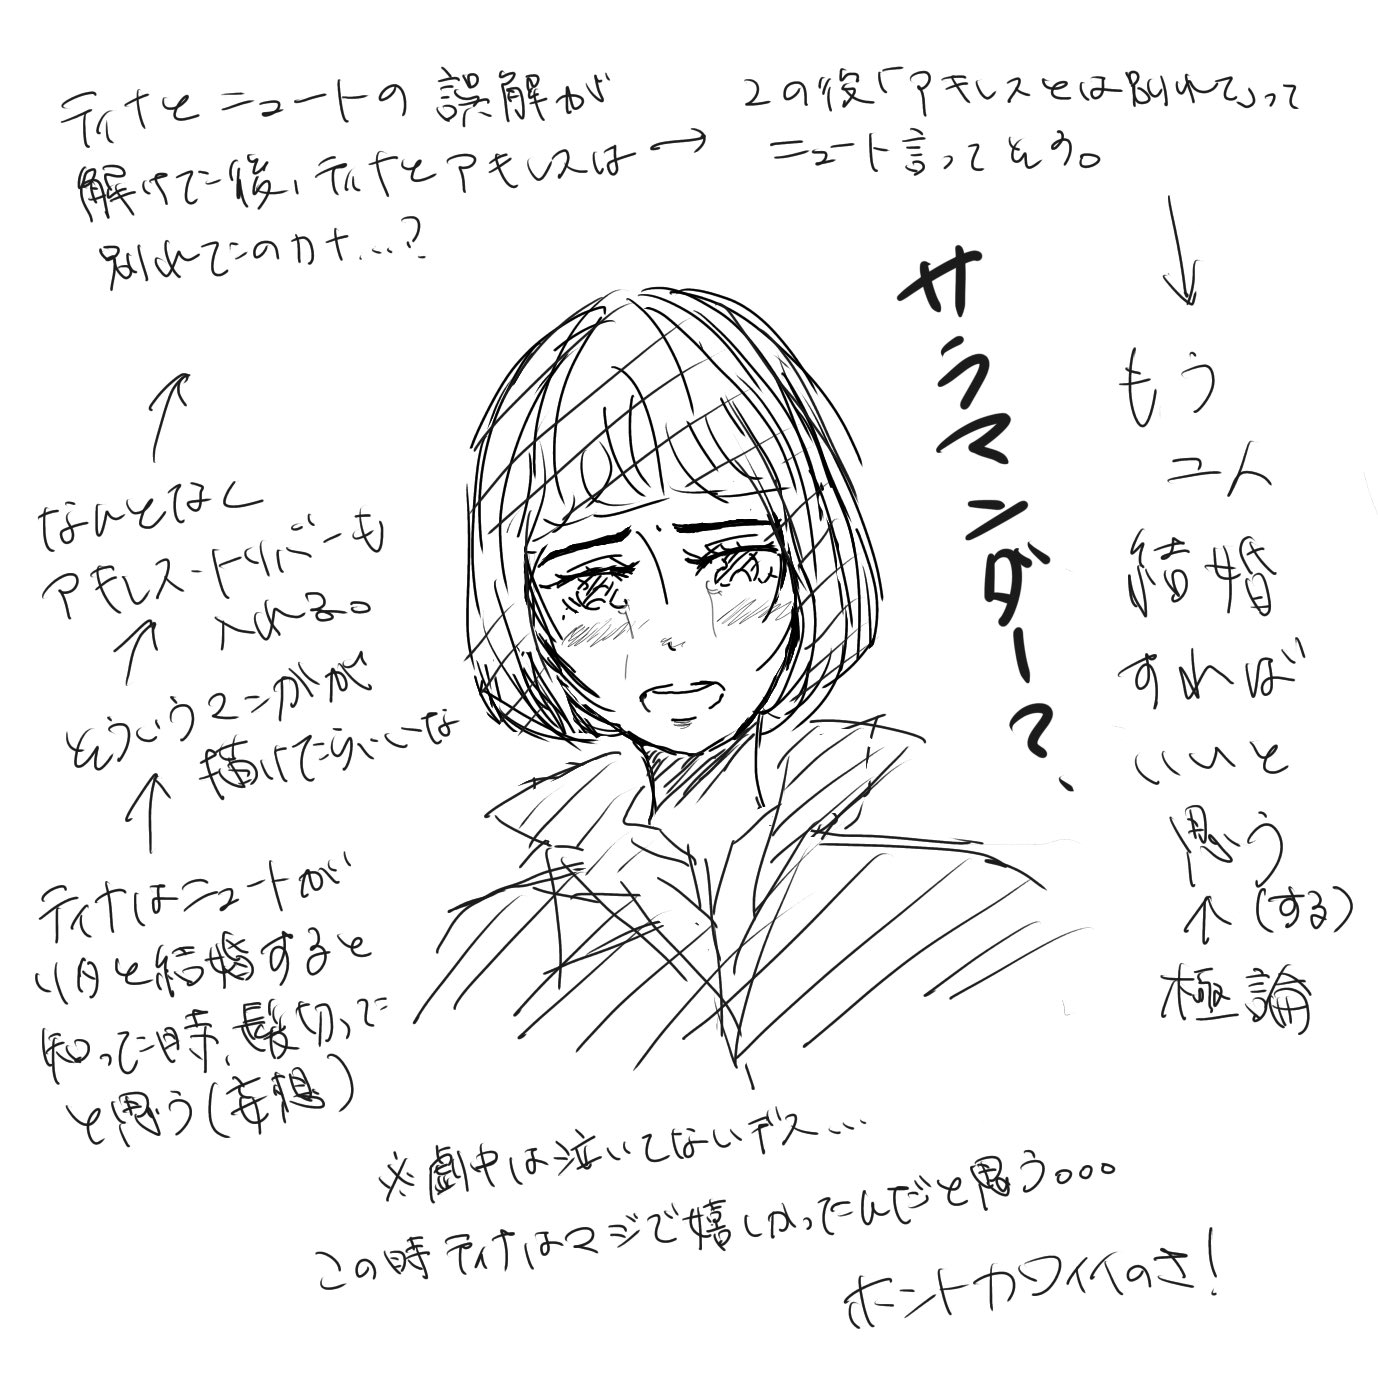 ティナとニュートの誤解が
解けた後、ティナとアキレスは→
別れたのカナ…?
この後「アキレスとは別れて」って
ニュート言ってそう。
↓
もう
2人
結婚
すれば
いいと
思う
↑(する)
極論
サラマンダー?、
↑
なんとなく
アキレス・トリバーも
入れる。
↑
そういうマンガが
描けたらいいな
↑
ティナはニュートが
リタと結婚すると
知った時、髪切った
と思う(妄想)
※劇中は泣いてないデス…
この時ティナはマジで嬉しかったんだと思う。。。
ホントカワイイのさ!